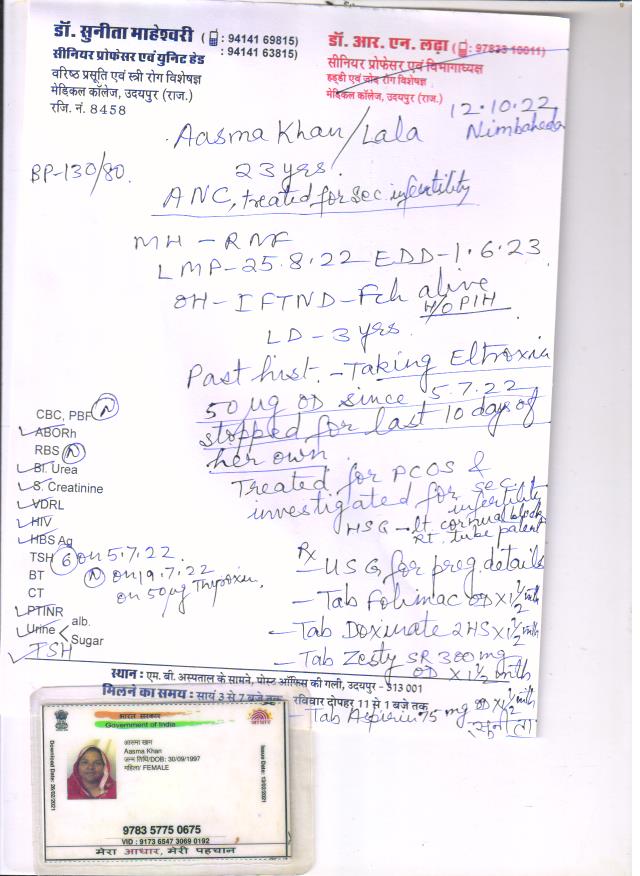 डॉ. सुनीता माहेश्वरी ( : 94141 69815)
: 94141 63815)
सीनियर प्रोफेसर एवं युनिट हेड
वरिष्ठ प्रसूति एवं स्त्री रोग विशेषज्ञ
मेडिकल कॉलेज, उदयपुर (राज.)
रजि. नं. 8458
डॉ. आर. एन. लढ़ा ( : 97823 10011)
सीनियर प्रोफेसर एवं विभागाध्यक्ष
हड्डी एवं जोड़ रोग विशेषज्ञ
मेडिकल कॉलेज, उदयपुर (राज.)
12.10.22
Nimbaheda
Aasma Khan/Lala
23 yrs.
BP-130/80.
ANC, treated for sec. infertility
MH - RNF
LMP-25.8.22 EDD-1.6.23
OH-IFTND-Fch alive
H/O PIH
LD-3 yrs.
Past hist. - Taking Eltroxin
50 µg OD since 5.7.22
stopped for last 10 days of
her own
Treated for PCOS &
investigated for sec.
infertility
HSG - lt. cornual block
Rt. tube patent
CBC, PBF (N)
ABORh
RBS (N)
Bl. Urea
S. Creatinine
VDRL
HIV
HBS Ag
TSH (6) on 5.7.22
BT (N) on 19.7.22
CT on 50µg Thyroxin,
PTINR
Urine < alb.
Sugar
TSH
Rx
- USG for preg. details
- Tab Folimac OD x 1½ mth
- Tab Doxinate 2HS x 1½ mth
- Tab Zesty SR 300 mg
OD x 1½ mth
- Tab Aspirin 75 mg OD x 1½ mth
स्थान : एम. बी. अस्पताल के सामने, पोस्ट ऑफिस की गली, उदयपुर - 313 001
मिलने का समय : सायं 3 से 7 बजे तक रविवार दोपहर 11 से 1 बजे तक
भारत सरकार
Government of India
आसमा खान
Aasma Khan
जन्म तिथि/DOB: 30/09/1997
महिला/ FEMALE
9783 5775 0675
VID : 9173 6547 3069 0192
मेरा आधार, मेरी पहचान